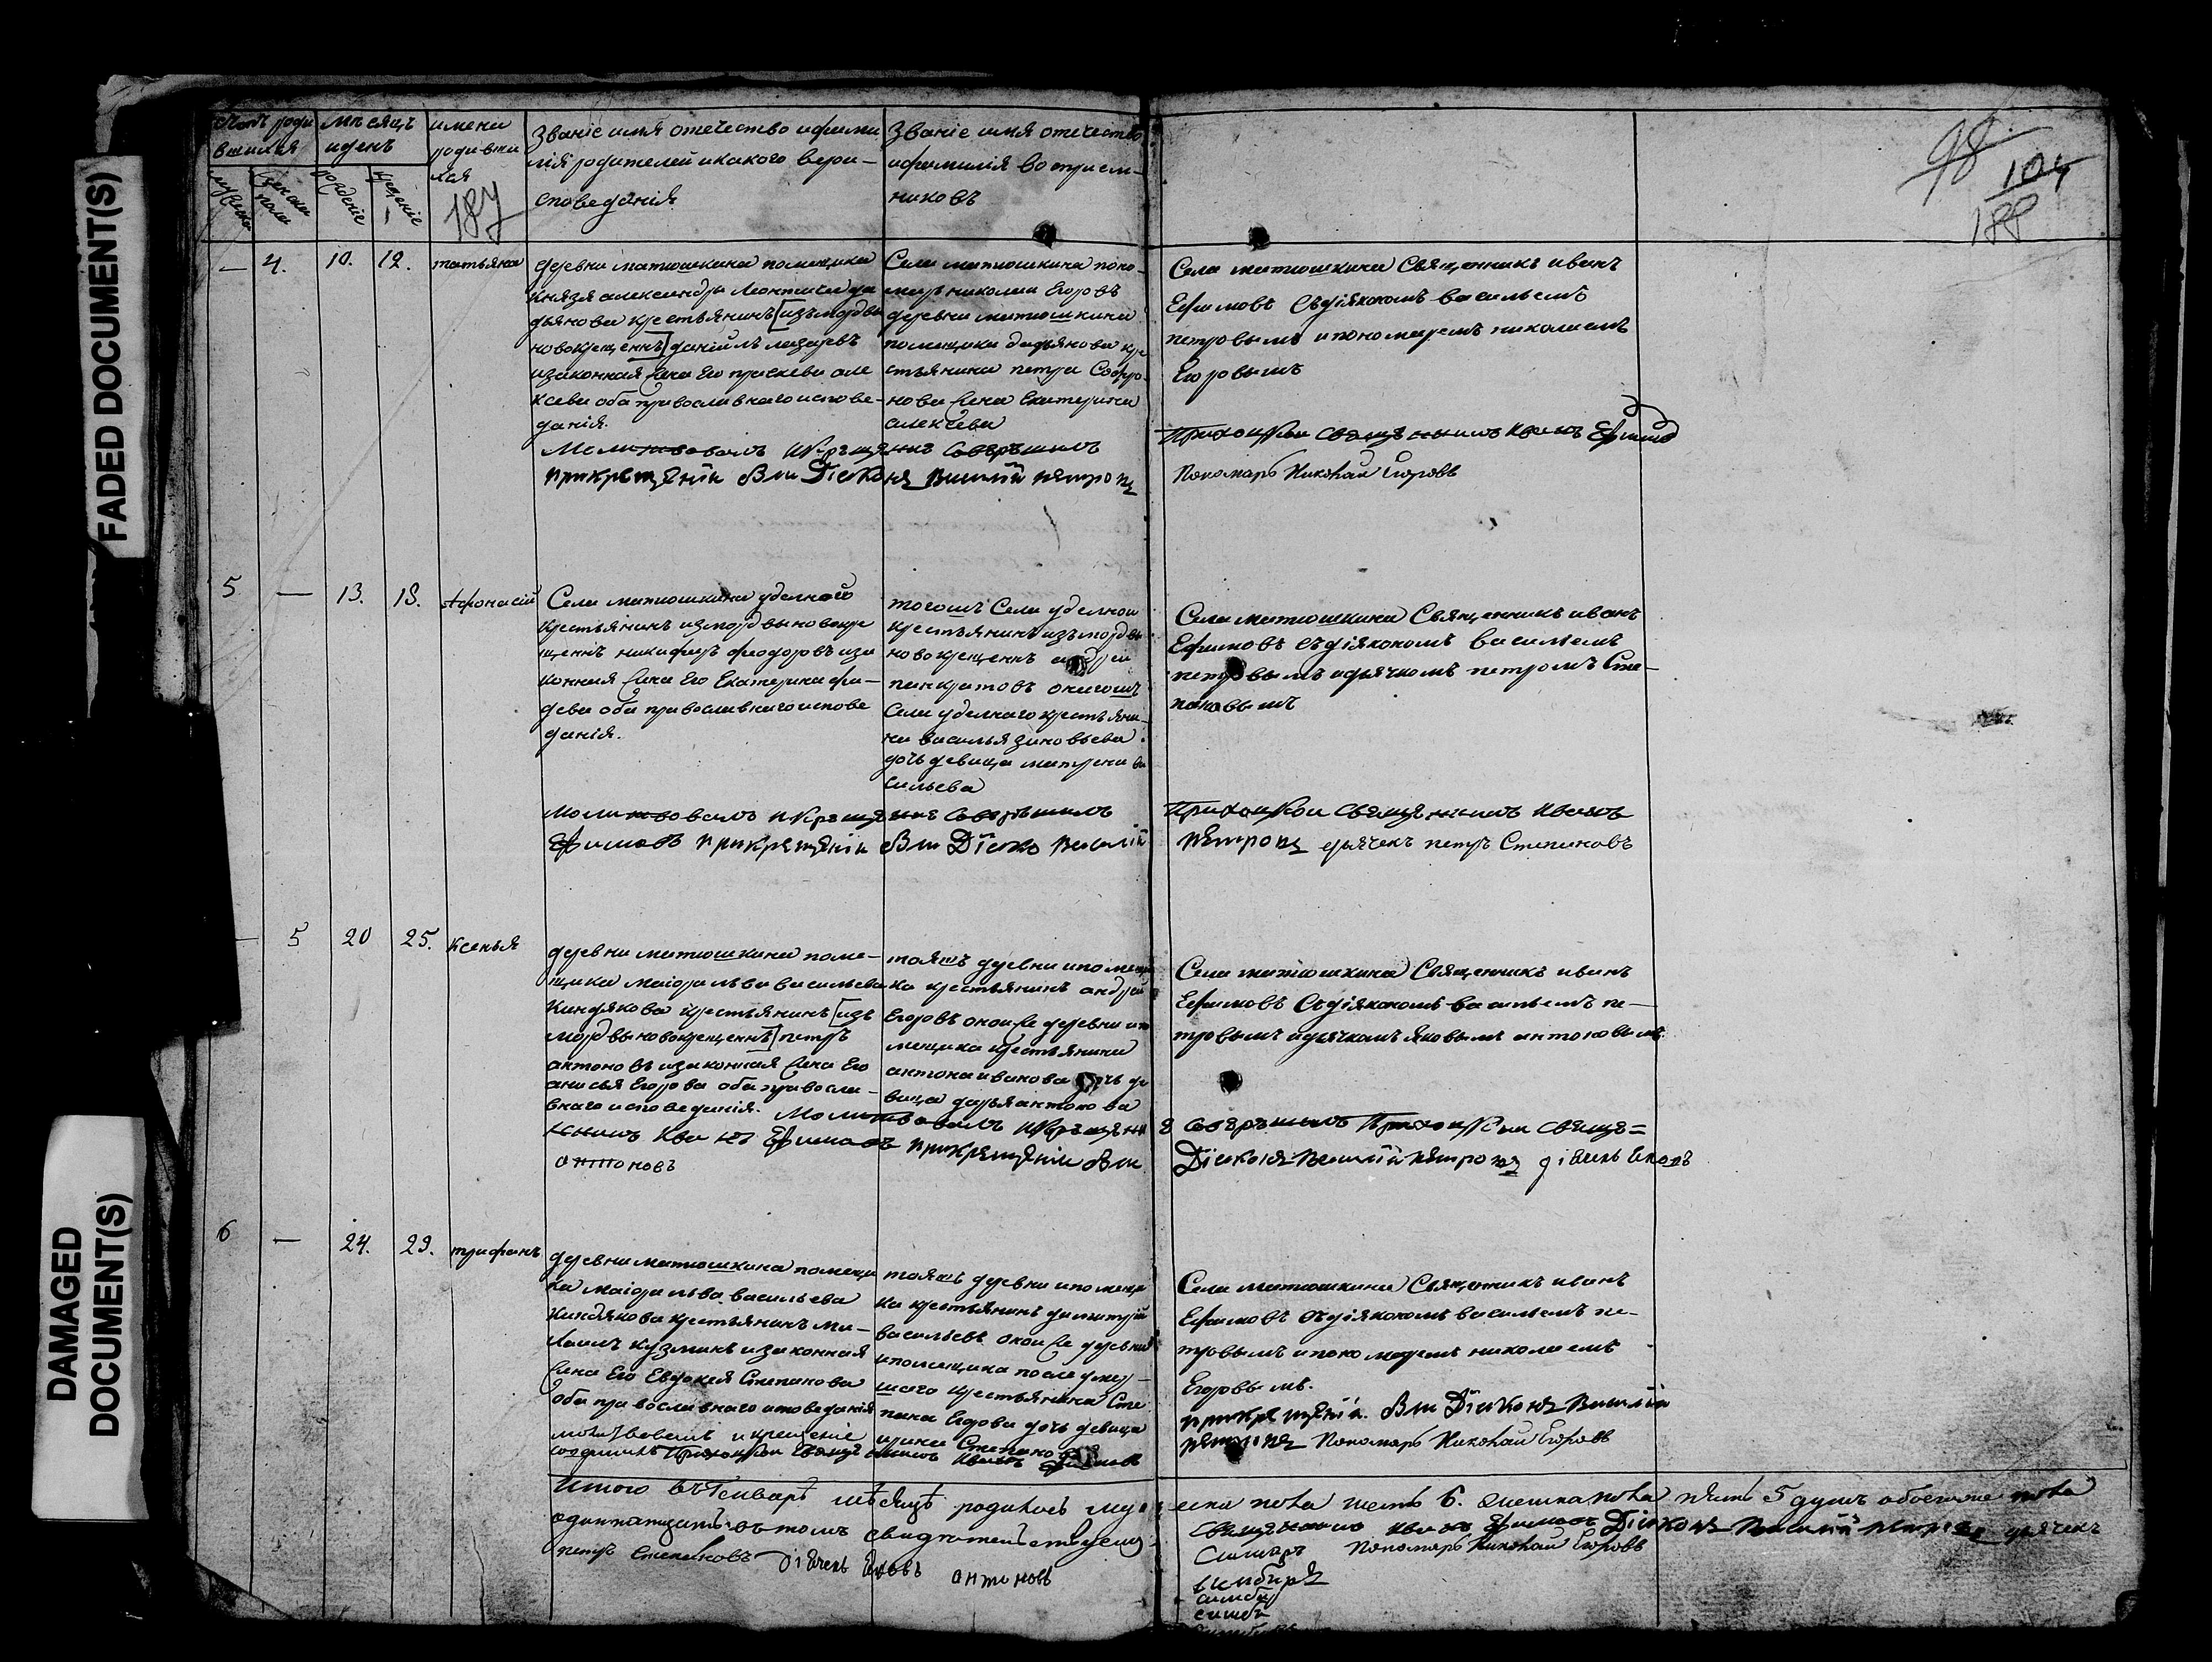 FADED DOCUMENT(S)
DAMAGED
DOCUMENT(S)
мѣсяцъ
и день
имена
родивши
хся
187
званіе имя отечество и фами
лія родителей и какого веро-
споведанія.
званіе имя отечество
и фамилія восприем-
никовъ
98
104
188
— 4. 10. 12. татьяна
деревни матюшкина помещика
князя александра
крестьянинъ [изъ мордвы
новокрещеннъ] даніилъ лазаревъ
и законная Его прасковья але
ксеева оба православнаго испове-
данія.
Села матюшкина поно-
марь николай Егоровъ
деревни матюшкина
помещика дадьянова кре
стьянина петра Софро-
нова жена Екатерина
алексеева
Села матюшкина Священникъ иванъ
Ефимовъ съ діякономъ васильемъ
петровымъ и пономаремъ николаемъ
Егоровымъ
Молитвовалъ и крещение совершилъ
Приходской священникъ Иванъ Ефимов
при крещении был Дiаконъ Василий Петровъ
Пономарь Николай Егоровъ
5 — 13. 18. Афонасій
Села матюшкина уделного
крестьянинъ из мордвы новокре
щеннъ никифоръ феодоровъ и за
конная жена Его Екатерина фа-
деева оба православнаго испове
данія.
тогожъ Села уделной
крестьянинъ изъ мордвы
новокрещеннъ андрей
панкратовъ оногожъ
Села уделнаго крестьяни-
на василья зиновьева
дочь девица матрена ва
сильева
Села матюшкина Священникъ иванъ
Ефимовъ съ діякономъ васильемъ
петровымъ и дьячкомъ петромъ Сте-
пановымъ
Молитвовалъ и крещение совершилъ
Приходской священникъ Иванъ
Ефимовъ при крещении был Дiаконъ Василий
Петровъ дьячекъ петръ Степановъ
— 5 20 25. ксенья
деревни матюшкина поме-
щика маіора льва васильева
Киндякова крестьянинъ [изъ
мордвы новокрещеннъ] петръ
антоновъ и законная жена Его
анисья Егорова оба правосла-
внаго исповеданія.
тояжъ деревни и помещи
ка крестьянинъ андрей
Егоровъ оной же деревни и по
мещика крестьянина
антона иванова дочь де
вица дарья антонова
Села матюшкина Священникъ иванъ
Ефимовъ съ діякономъ васильемъ пе-
тровымъ и дьячкомъ яковымъ антоновымъ.
Молитвовалъ и крещение совершилъ Приходской свяще=
нникъ Иванъ Ефимовъ при крещении был Дiаконъ Василий Петровъ дiячекъ Яковъ
антоновъ
6 — 24. 29. трифонъ
деревни матюшкина помещи
ка маіора льва васильева
Киндякова крестьянинъ ми-
хаилъ кузминъ и законная
жена Его Евдокея Степанова
оба православнаго исповеданія
тояжъ деревни и помещи
ка крестьянинъ димитрій
васильевъ оной же деревни
и помещика после умер-
шаго крестьянина Сте
пана Егорова дочь девица
ирина Степанова
Села матюшкина Священникъ иванъ
Ефимовъ съ діякономъ васильемъ пе-
тровымъ и пономаремъ николаемъ
Егоровымъ.
молитвовалъ и крещение
совершилъ Приходской священникъ Иванъ Ефимовъ
при крещении был Дiаконъ Василий
Петровъ Пономарь Николай Егоровъ
Итого въ Генваре мѣсяцѣ родилось мужеска пола шесть 6. а женска пола пять 5 душъ обоего пола
одиннатцать въ томъ свидетельствуемъ
священникъ Иванъ Ефимовъ Дiаконъ Василий Петровъ дьячекъ
петръ Степановъ дiячекъ Яковъ антоновъ
Пономарь Николай Егоровъ